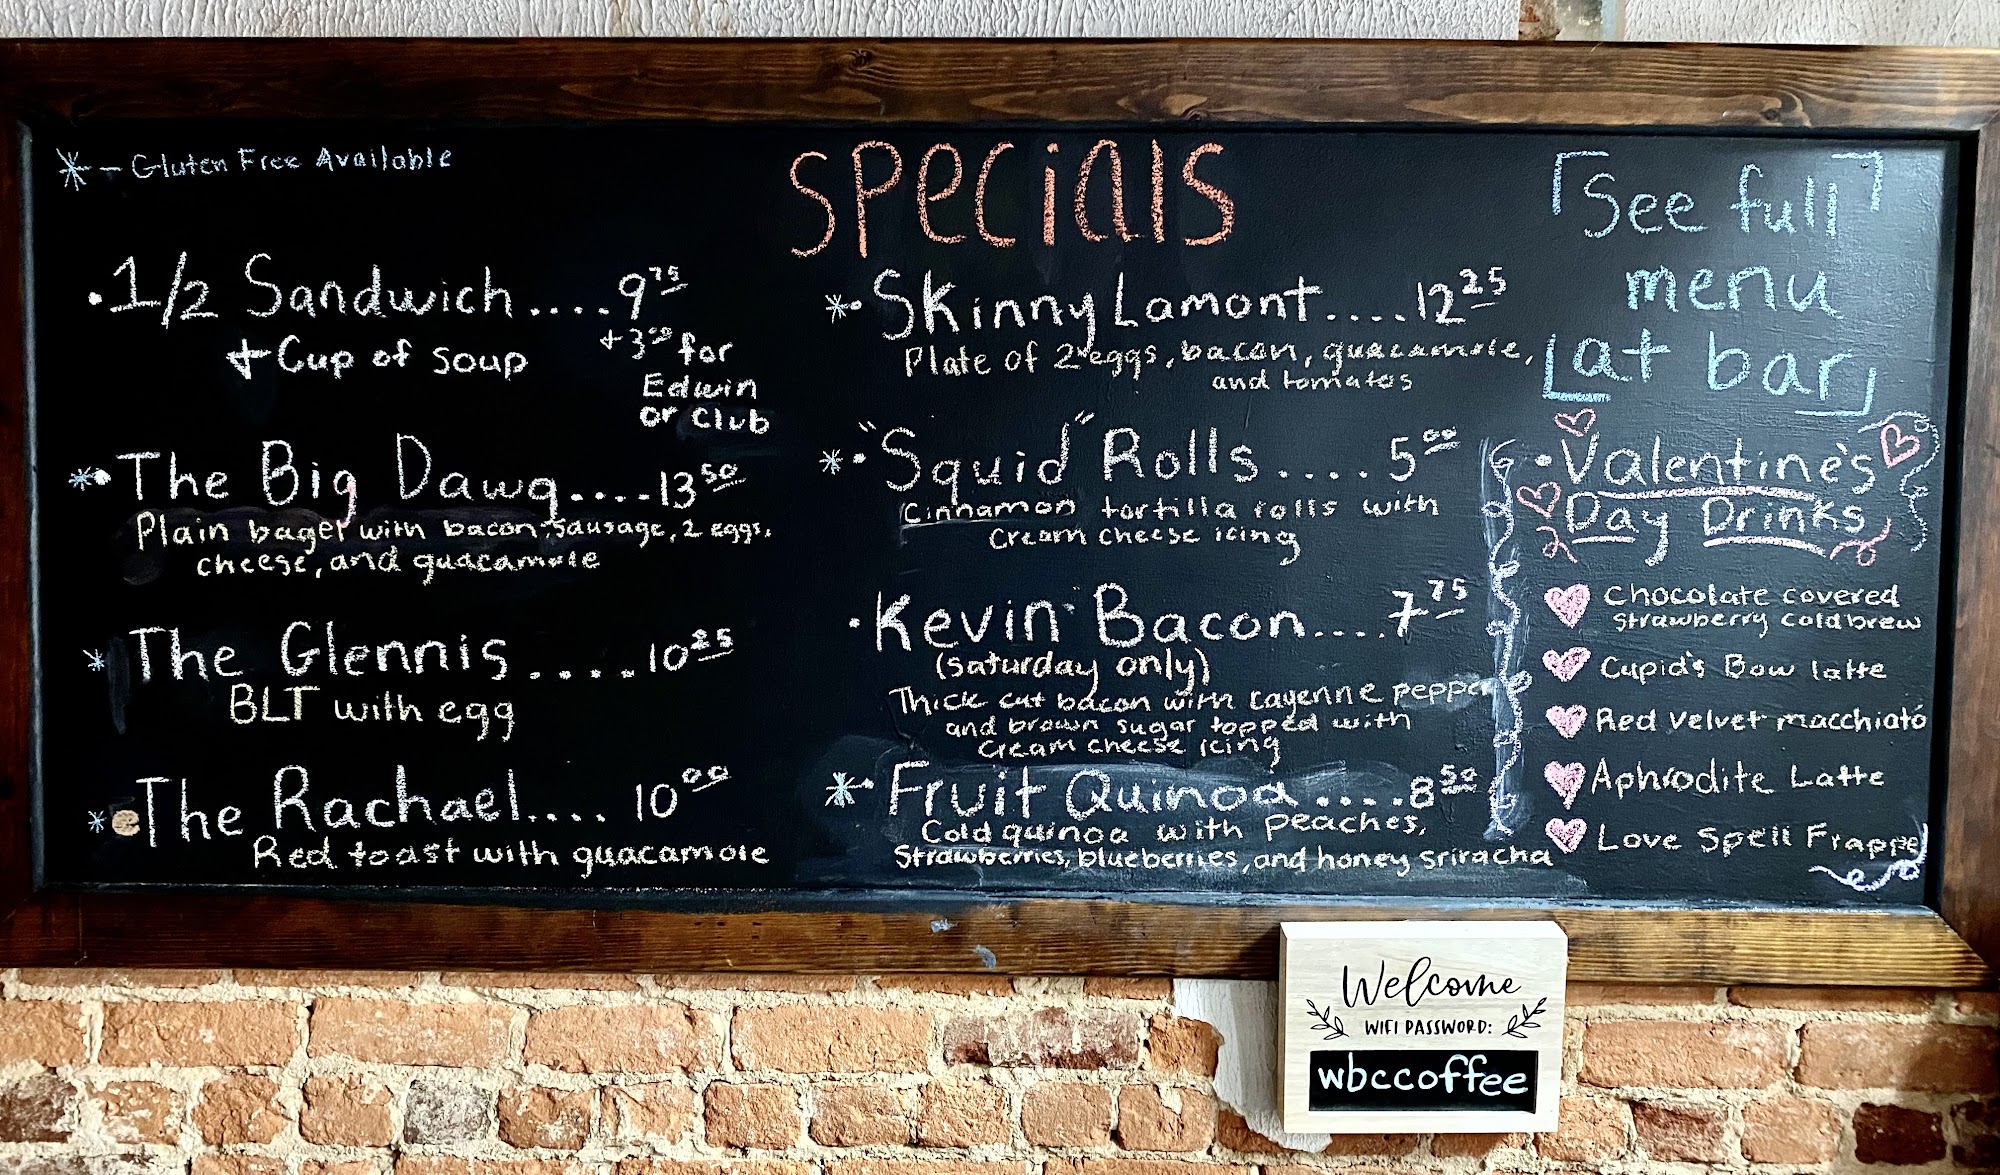 * - Gluten Free Available
Specials
• 1/2 Sandwich .... 9 75
+ Cup of soup
+3 50 for
Edwin
or Club
* • The Big Dawg.... 13 50
Plain bager with bacon, sausage, 2 eggs,
cheese, and guacamole
* The Glennis .... 10 25
BLT with egg
* The Rachael.... 10 00
Red toast with guacamole
* • Skinny Lamont.... 12 25
Plate of 2 eggs, bacon, guacamole,
and tomatos
* • "Squid" Rolls .... 5 00
Cinnamon tortilla rolls with
Cream cheese icing
• Kevin Bacon.... 7 75
(Saturday only)
Thick cut bacon with cayenne pepper
and brown sugar topped with
Cream cheese icing
* • Fruit Quinoa .... 8 50
Cold quinoa with Peaches,
Strawberries, blueberries, and honey sriracha
[See full]
menu
[at bar]
• Valentine's
Day Drinks
♥ Chocolate covered
Strawberry coldbrew
♥ Cupid's Bow latte
♥ Red Velvet macchiato
♥ Aphrodite Latte
♥ Love Spell Frappe
Welcome
WIFI PASSWORD:
wbccoffee